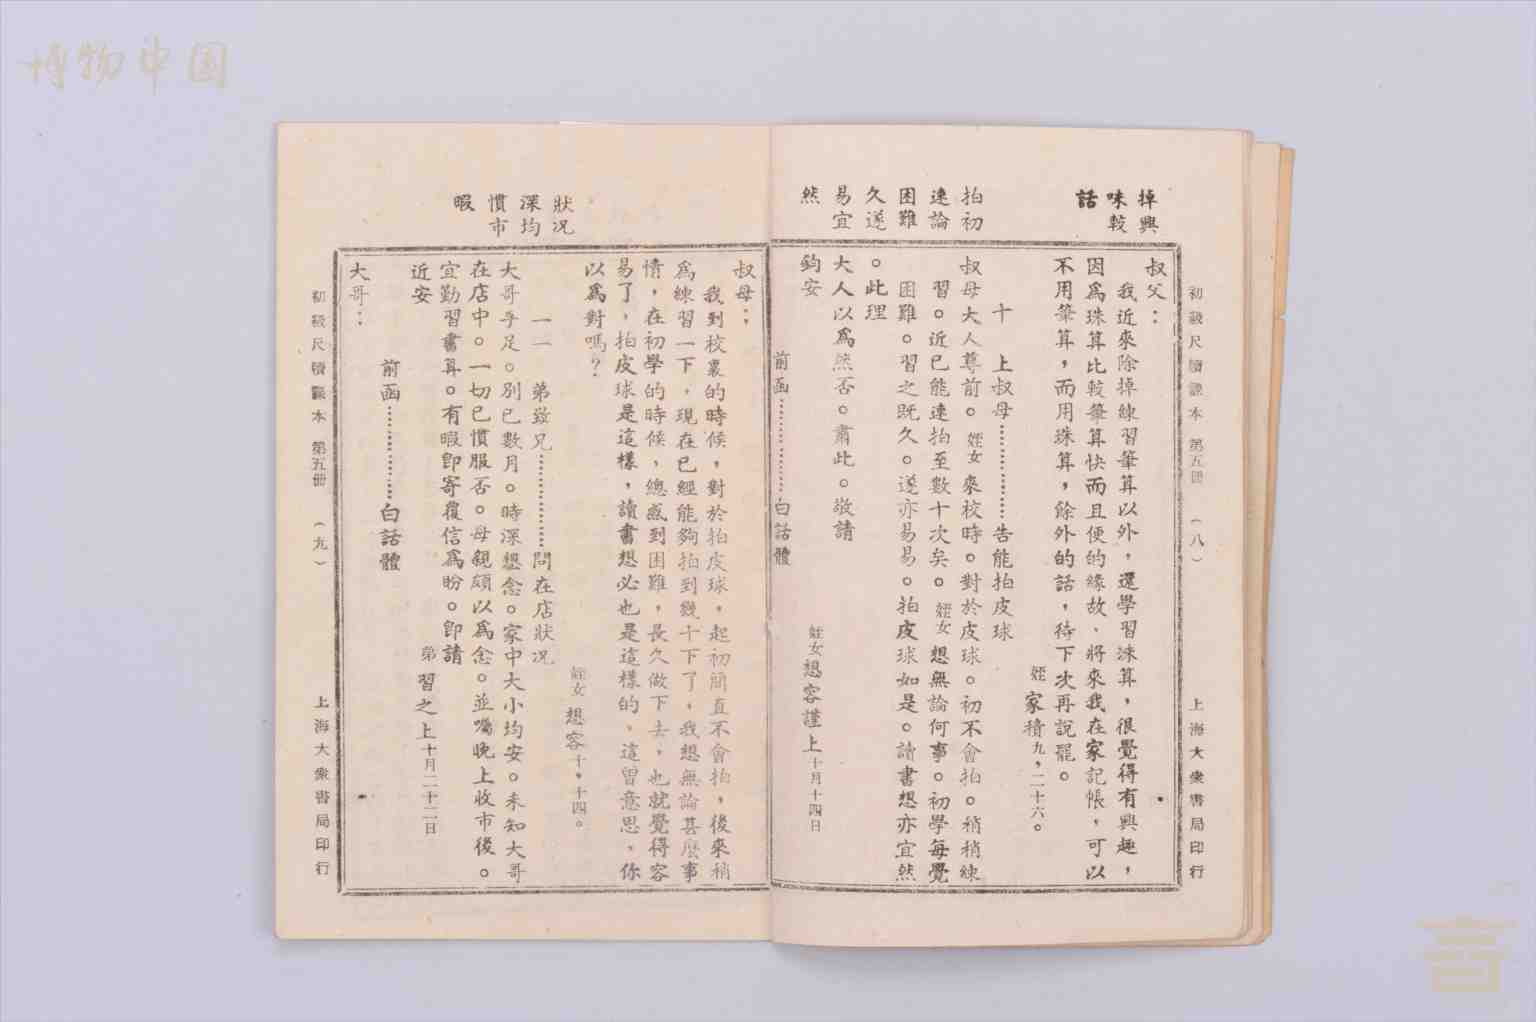 博物中国
掉興
味較
話
叔父：
我近來除掉練習筆算以外，還學習珠算，很覺得有興趣，
因爲珠算比較筆算快而且便的緣故、將來我在家記帳，可以
不用筆算，而用珠算，餘外的話，待下次再說罷。
姪 家積九，二十六。
拍初
速論
困難
久遂
易宜
然
十 上叔母……………告能拍皮球
叔母大人尊前。姪女來校時。對於皮球。初不會拍。稍稍練
習。近已能連拍至數十次矣。姪女想無論何事。初學每覺
困難。習之既久。遂亦易易。拍皮球如是。讀書想亦宜然
。此理
大人以爲然否。肅此。敬請
鈞安
姪女想容謹上十月十四日
前函……………白話體
初級尺牘課本 第五冊 （八） 上海大衆書局印行
叔母：
我到校裏的時候，對於拍皮球，起初簡直不會拍，後來稍
爲練習一下，現在已經能夠拍到幾十下了，我想無論甚麼事
情，在初學的時候，總感到困難，長久做下去，也就覺得容
易了，拍皮球是這樣，讀書想必也是這樣的，這曾意思，你
以爲對嗎？
姪女 想容十，十四。
狀况
深均
慣市
暇
一一 弟致兄……………問在店狀况
大哥手足。別已數月。時深懇念。家中大小均安。未知大哥
在店中。一切已慣服否。母親頗以爲念。並囑晚上收市後。
宜勤習書算。有暇即寄覆信爲盼。即請
近安
弟 習之上十月二十二日
前函……………白話體
大哥：
初級尺牘課本 第五冊 （九） 上海大衆書局印行